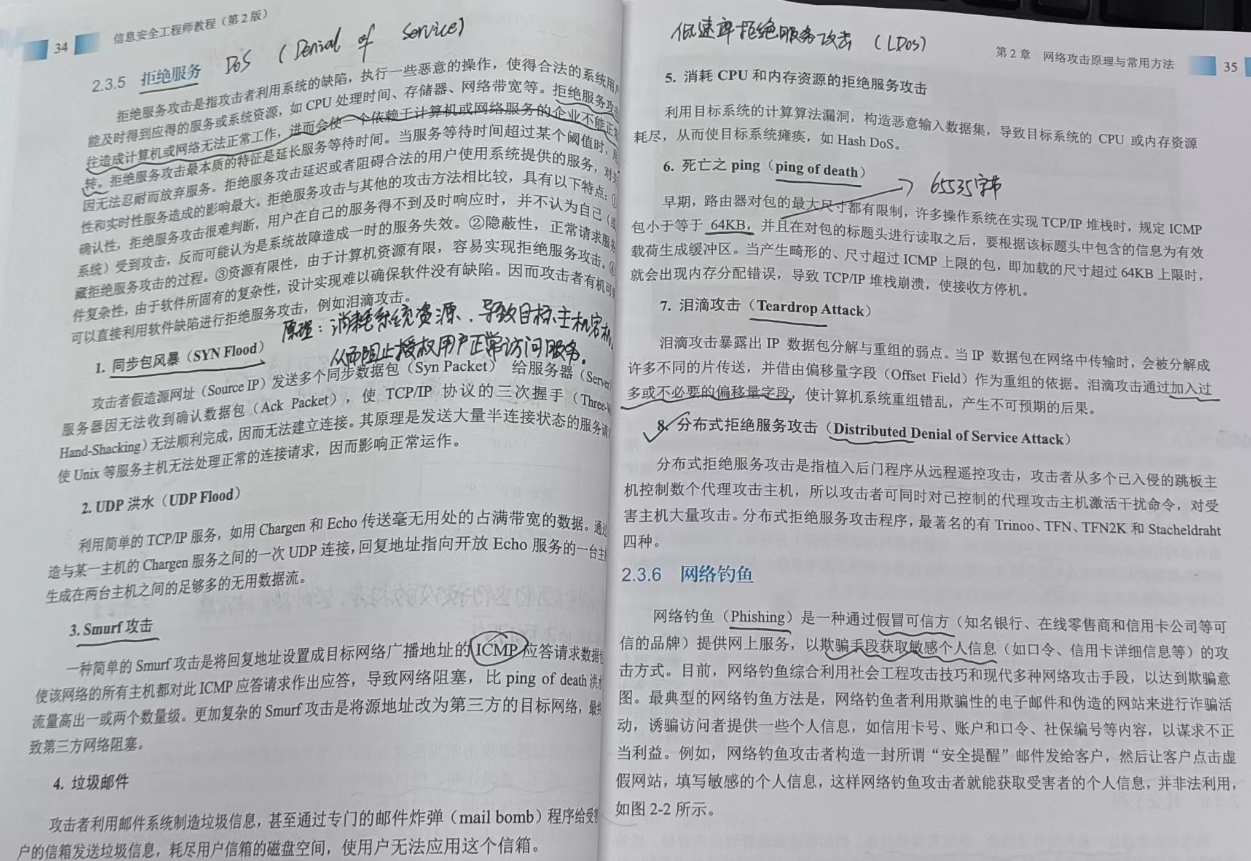 34 信息安全工程师教程（第2版）
DoS （Denial of Service）
2.3.5 拒绝服务
拒绝服务攻击是指攻击者利用系统的缺陷，执行一些恶意的操作，使得合法的系统用
能及时得到应得的服务或系统资源，如 CPU 处理时间、存储器、网络带宽等。拒绝服务攻
往造成计算机或网络无法正常工作，进而会使一个依赖于计算机或网络服务的企业不能正
转。拒绝服务攻击最本质的特征是延长服务等待时间。当服务等待时间超过某个阈值时，
因无法忍耐而放弃服务。拒绝服务攻击延迟或者阻碍合法的用户使用系统提供的服务，对
性和实时性服务造成的影响最大。拒绝服务攻击与其他的攻击方法相比较，具有以下特点：
确认性，拒绝服务攻击很难判断，用户在自己的服务得不到及时响应时，并不认为自己（
系统）受到攻击，反而可能认为是系统故障造成一时的服务失效。②隐蔽性，正常请求服
藏拒绝服务攻击的过程。③资源有限性，由于计算机资源有限，容易实现拒绝服务攻击。
件复杂性，由于软件所固有的复杂性，设计实现难以确保软件没有缺陷。因而攻击者有机可
可以直接利用软件缺陷进行拒绝服务攻击，例如泪滴攻击。
原理：消耗系统资源、导致目标主机宕机，
从而阻止授权用户正常访问服务。
1. 同步包风暴（SYN Flood）
攻击者假造源网址（Source IP）发送多个同步数据包（Syn Packet）给服务器（Server
服务器因无法收到确认数据包（Ack Packet），使 TCP/IP 协议的三次握手（Three-
Hand-Shacking）无法顺利完成，因而无法建立连接。其原理是发送大量半连接状态的服务请
使 Unix 等服务主机无法处理正常的连接请求，因而影响正常运作。
2. UDP 洪水（UDP Flood）
利用简单的 TCP/IP 服务，如用 Chargen 和 Echo 传送毫无用处的占满带宽的数据。通过
造与某一主机的 Chargen 服务之间的一次 UDP 连接，回复地址指向开放 Echo 服务的一台主
生成在两台主机之间的足够多的无用数据流。
3. Smurf 攻击
一种简单的 Smurf 攻击是将回复地址设置成目标网络广播地址的 ICMP 应答请求数据
使该网络的所有主机都对此 ICMP 应答请求作出应答，导致网络阻塞，比 ping of death 洪
流量高出一或两个数量级。更加复杂的 Smurf 攻击是将源地址改为第三方的目标网络，最
致第三方网络阻塞。
4. 垃圾邮件
攻击者利用邮件系统制造垃圾信息，甚至通过专门的邮件炸弹（mail bomb）程序给受
户的信箱发送垃圾信息，耗尽用户信箱的磁盘空间，使用户无法应用这个信箱。
低速率拒绝服务攻击（LDoS）
第 2 章 网络攻击原理与常用方法 35
5. 消耗 CPU 和内存资源的拒绝服务攻击
利用目标系统的计算算法漏洞，构造恶意输入数据集，导致目标系统的 CPU 或内存资源
耗尽，从而使目标系统瘫痪，如 Hash DoS。
6. 死亡之 ping（ping of death）
65535字节
早期，路由器对包的最大尺寸都有限制，许多操作系统在实现 TCP/IP 堆栈时，规定 ICMP
包小于等于 64KB，并且在对包的标题头进行读取之后，要根据该标题头中包含的信息为有效
载荷生成缓冲区。当产生畸形的、尺寸超过 ICMP 上限的包，即加载的尺寸超过 64KB 上限时，
就会出现内存分配错误，导致 TCP/IP 堆栈崩溃，使接收方停机。
7. 泪滴攻击（Teardrop Attack）
泪滴攻击暴露出 IP 数据包分解与重组的弱点。当 IP 数据包在网络中传输时，会被分解成
许多不同的片传送，并借由偏移量字段（Offset Field）作为重组的依据。泪滴攻击通过加入过
多或不必要的偏移量字段，使计算机系统重组错乱，产生不可预期的后果。
8. 分布式拒绝服务攻击（Distributed Denial of Service Attack）
分布式拒绝服务攻击是指植入后门程序从远程遥控攻击，攻击者从多个已入侵的跳板主
机控制数个代理攻击主机，所以攻击者可同时对已控制的代理攻击主机激活干扰命令，对受
害主机大量攻击。分布式拒绝服务攻击程序，最著名的有 Trinoo、TFN、TFN2K 和 Stacheldraht
四种。
2.3.6 网络钓鱼
网络钓鱼（Phishing）是一种通过假冒可信方（知名银行、在线零售商和信用卡公司等可
信的品牌）提供网上服务，以欺骗手段获取敏感个人信息（如口令、信用卡详细信息等）的攻
击方式。目前，网络钓鱼综合利用社会工程攻击技巧和现代多种网络攻击手段，以达到欺骗意
图。最典型的网络钓鱼方法是，网络钓鱼者利用欺骗性的电子邮件和伪造的网站来进行诈骗活
动，诱骗访问者提供一些个人信息，如信用卡号、账户和口令、社保编号等内容，以谋求不正
当利益。例如，网络钓鱼攻击者构造一封所谓“安全提醒”邮件发给客户，然后让客户点击虚
假网站，填写敏感的个人信息，这样网络钓鱼攻击者就能获取受害者的个人信息，并非法利用，
如图 2-2 所示。